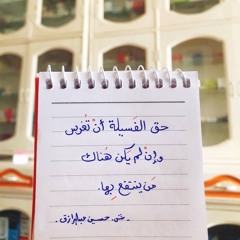 حق الفَسيلة أنْ تُغرس
وإنْ لم يَكن هُناك
مَن ينتفع بِها.
- حسين عبدالرازق -